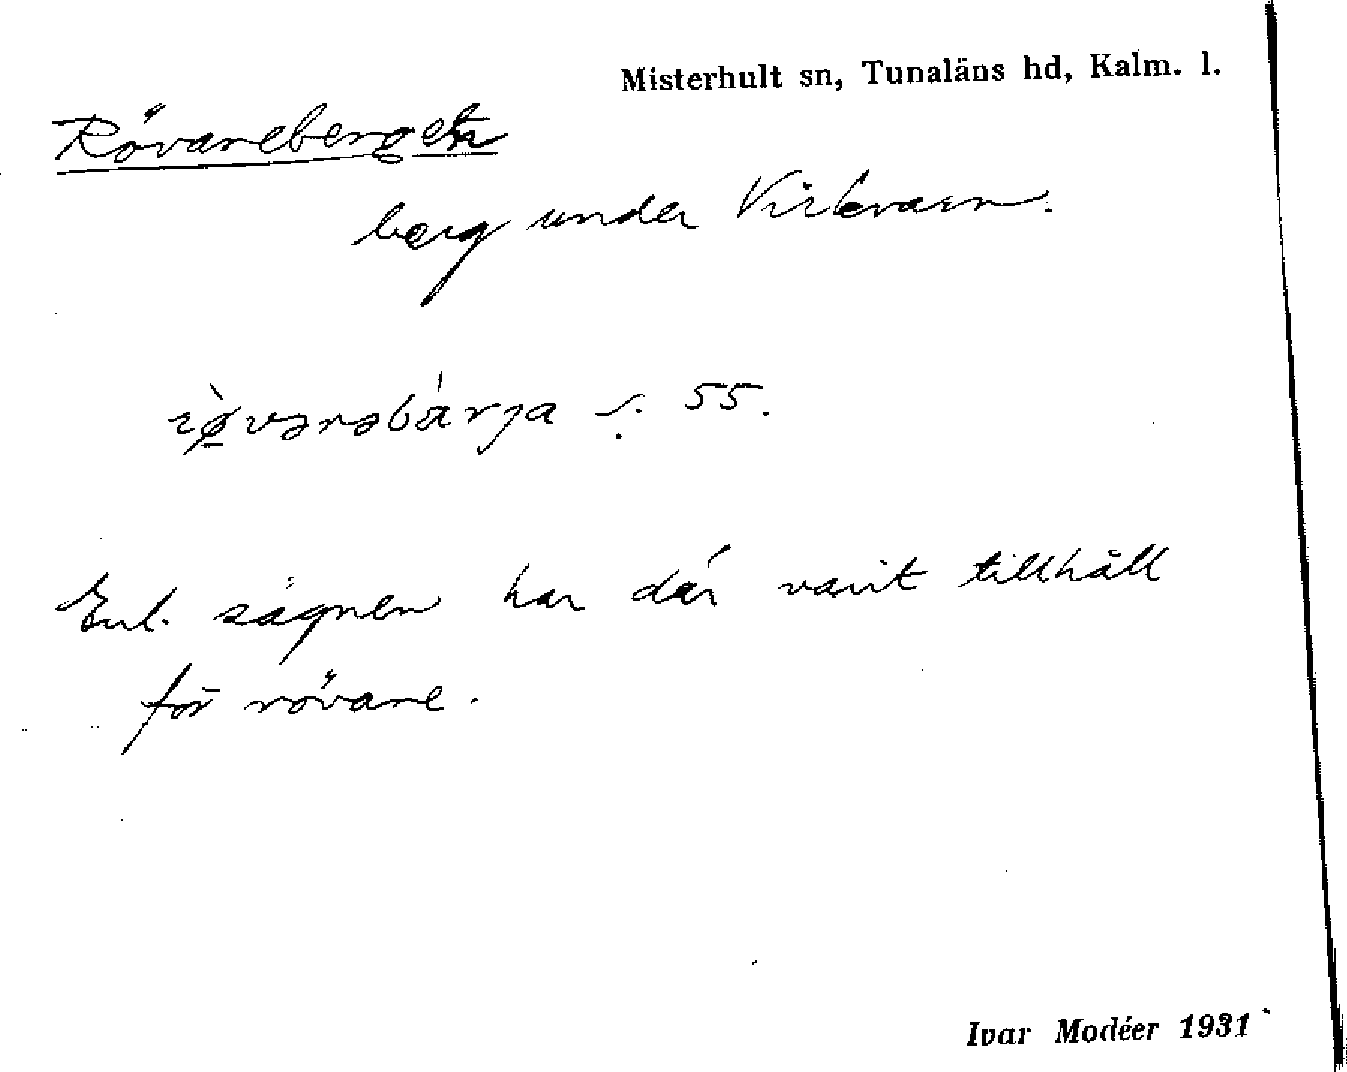 Misterhult sn, Tunaläns hd, Kalm. l.
Rövareberget
berg under Virkvarn.
rø̀vərəbárja s. 55.
Enl. sägnen har där varit tillhåll
för rövare.
Ivar Modéer 1931